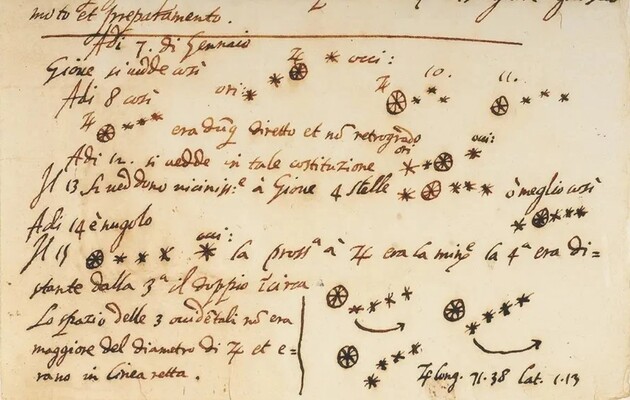 moto et preparamento.
Adi 7. di Gennaio
Giove si vedde così ori: ♃ occi:
Adi 8 così ♃ 10. 11.
♃ era dūq̄ diretto et nō retrogrado
Adi 12. si vedde in tale costituzione ori occi:
Il 13 si veddono viciniss.e à Giove 4 stelle ò meglio così
Adi 14 è nugolo
Il 15 occi: la pross.a à ♃ era la min.e la 4.a era di=
stante dalla 3.a il doppio ī circa
Lo spazio delle 3 occidētali nō era
maggiore del diametro di ♃ et e=
rano in linea retta.
♃ long. 71.38 Lat. 1.13